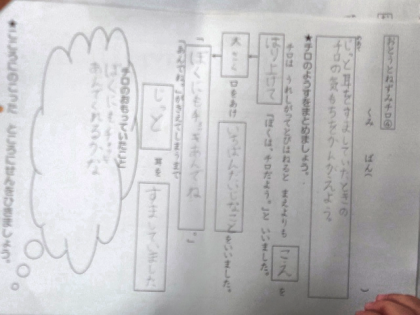 おとうとねずみチロ④
くみ ばん
じっと耳をすましていたときの
チロの気もちをかんがえよう。
★チロのようすをまとめましょう。
チロは うれしがってとびはねると まえよりも こえ を
はり上げて 「ぼくは、チロだよう。」と いいました。
大ごえ 口をあけ いちばんだいじなこと をいいました。
「ぼくにもチョッキあんでね 。」
「あんでね。」がきえてしまうまで
じっと 耳を すましていました
チロのおもっていたこと
ぼくにもチョッキ
あんでくれるかな
★こころにのこった ところにせんをひきましょう。